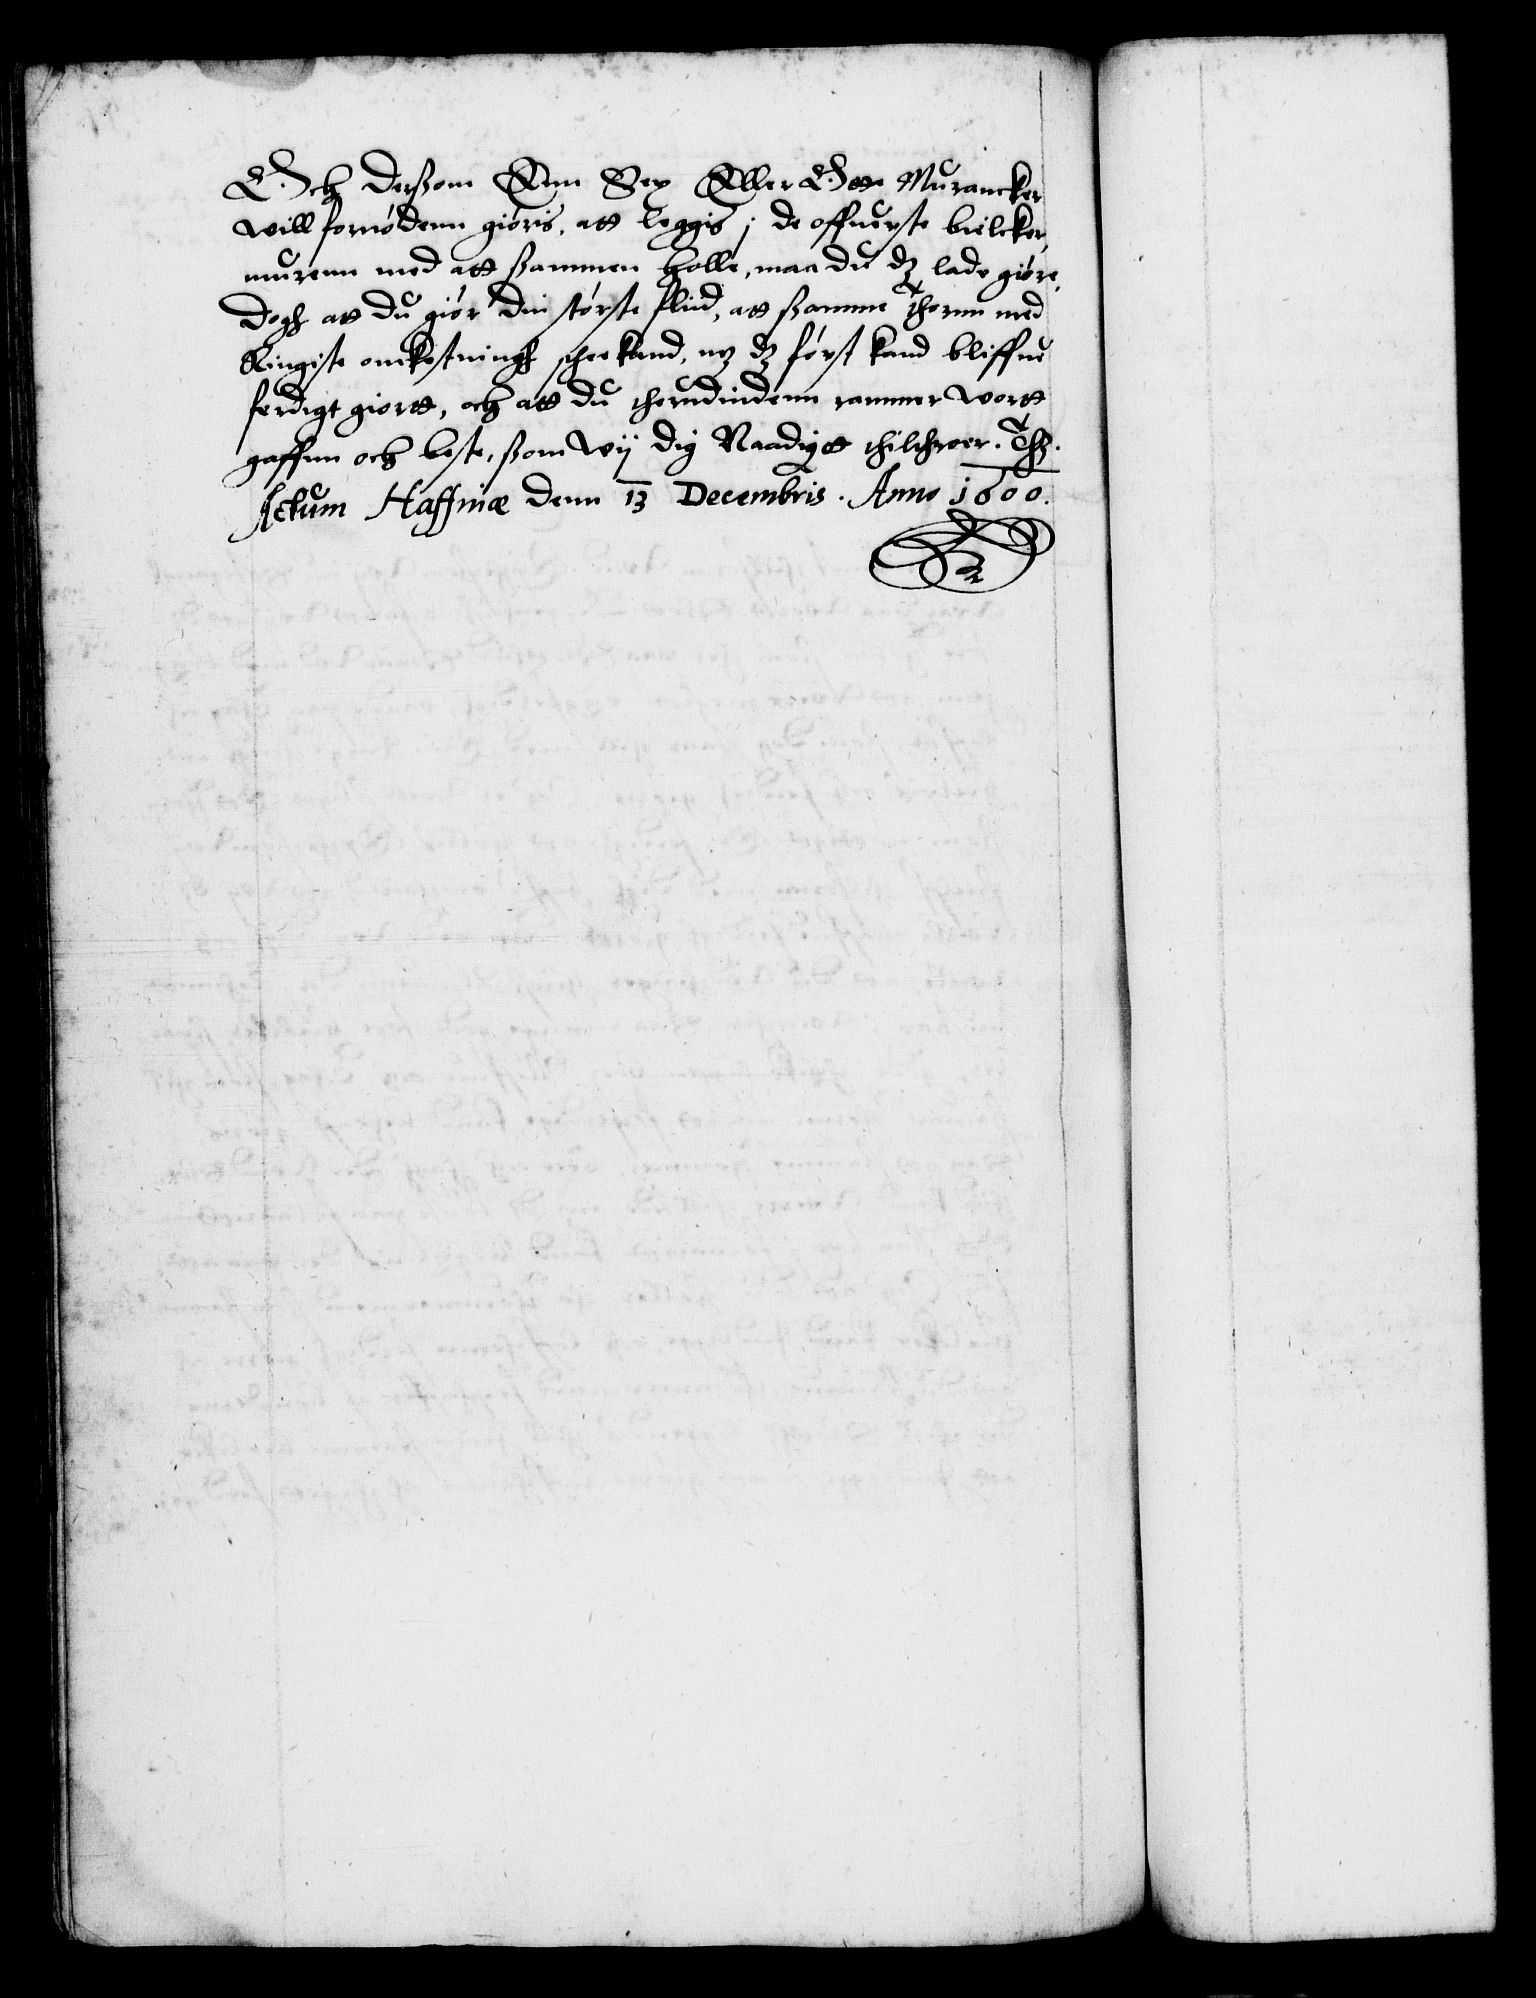 Och dersom Enn Sex Eller Otte Murancker
will fornødenn giøris, att leggis j de offuerste bielcker,
murenn med att ßammen holle, maa du dz lade giøre,
dogh att du giør din største flid, att ßamme thornn med
Ringiste omkostningh schee kand, nz dz først kand bliffue
ferdigt giortt, och att du herudindenn rammer wortt
gaffnn och beste, ßom wij dig Naadigst thilthroer. Thz.
Actum Haffniæ denn 13 Decembris. Anno 1600.